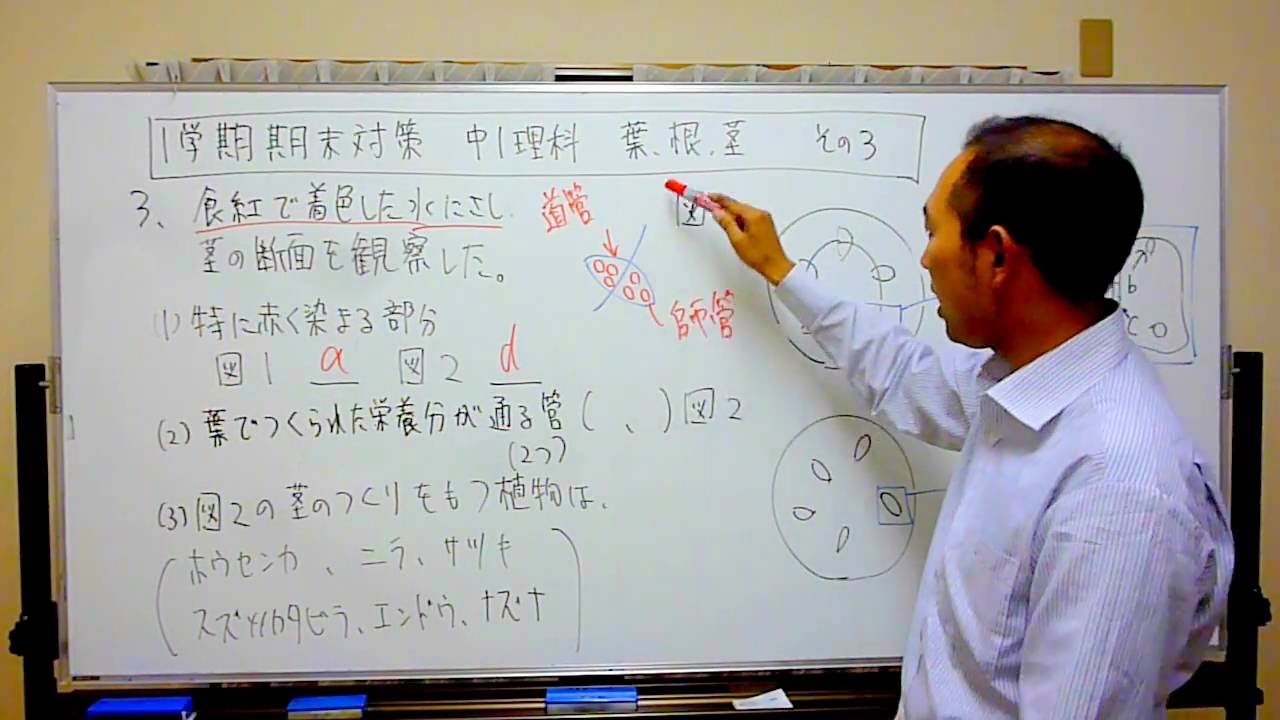 1学期期末対策 中1理科 葉、根、茎 その3
3、食紅で着色した水にさし
茎の断面を観察した。
道管
師管
図
(1)特に赤く染まる部分
図1 a 図2 d
(2)葉でつくられた栄養分が通る管( 、 )図2
(2つ)
(3)図2の茎のつくりをもつ植物は、
(ホウセンカ、ニラ、サツキ
スズメノカタビラ、エンドウ、ナズナ)
b
c